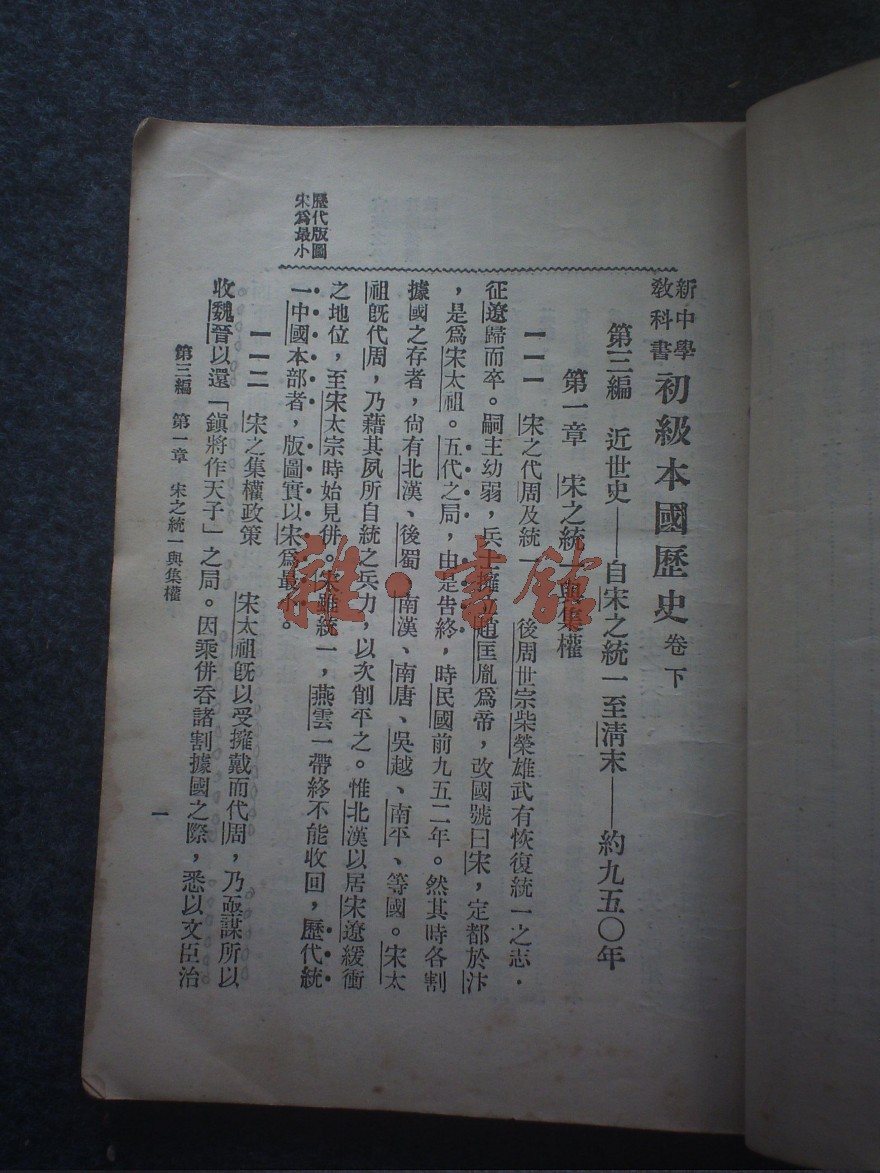 新中學
教科書
初級本國歷史 卷下
第三編 近世史——自宋之統一至淸末——約九五〇年
第一章 宋之統一與集權
一一一 宋之代周及統一 後周世宗柴榮雄武有恢復統一之志．
征遼歸而卒。嗣主幼弱，兵士擁立趙匡胤爲帝，改國號曰宋，定都於汴
，是爲宋太祖。五代之局，由是告終，時民國前九五二年。然其時各割
據國之存者，尙有北漢、後蜀、南漢、南唐、吳越、南平、等國。宋太
祖旣代周，乃藉其夙所自統之兵力，以次削平之。惟北漢以居宋遼緩衝
之地位，至宋太宗時始見併。宋雖統一，燕雲一帶終不能收回，歷代統
一中國本部者，版圖實以宋爲最小。
歷代版圖
宋爲最小
一一二 宋之集權政策 宋太祖旣以受擁戴而代周，乃亟謀所以
收魏晉以還「鎭將作天子」之局。因乘併吞諸割據國之際，悉以文臣治
第三編 第一章 宋之統一與集權
一
雜·書館